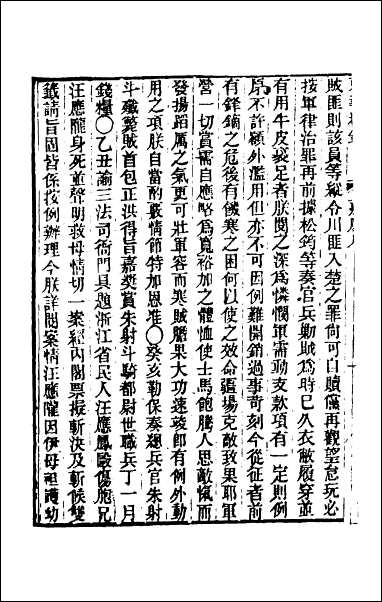 賊匪則該員等縱令川匪入楚之罪尚可自贖儻再觀望怠玩必
按軍律治罪再前據松筠等奏官兵勦賊爲時已久衣敝履穿並
有用牛皮裹足者朕閱之深爲憐憫軍需動支款項有一定則例
原不許額外濫用但亦不可因例難開銷過事苛刻今從征者前
有鋒鏑之危後有饑寒之困何以使之效命疆場克敵致果耶軍
營一切賞需自應略爲寬裕加之體恤使士馬飽騰人思敵愾而
發揚蹈厲之氣更可壯軍容而寒賊膽果大功速蕆卽有例外動
用之項朕自當酌覈情節特加恩准○癸亥勒保奏總兵官朱射
斗殲斃賊首包正洪得旨嘉獎賞朱射斗騎都尉世職兵丁一月
錢糧○乙丑諭三法司衙門具題浙江省民人汪應鳳毆傷胞兄
汪應隴身死並聲明救母情切一案經內閣票擬斬決及斬候雙
籤請旨固皆係按例辦理今朕詳閱案情汪應隴因伊母袒護幼